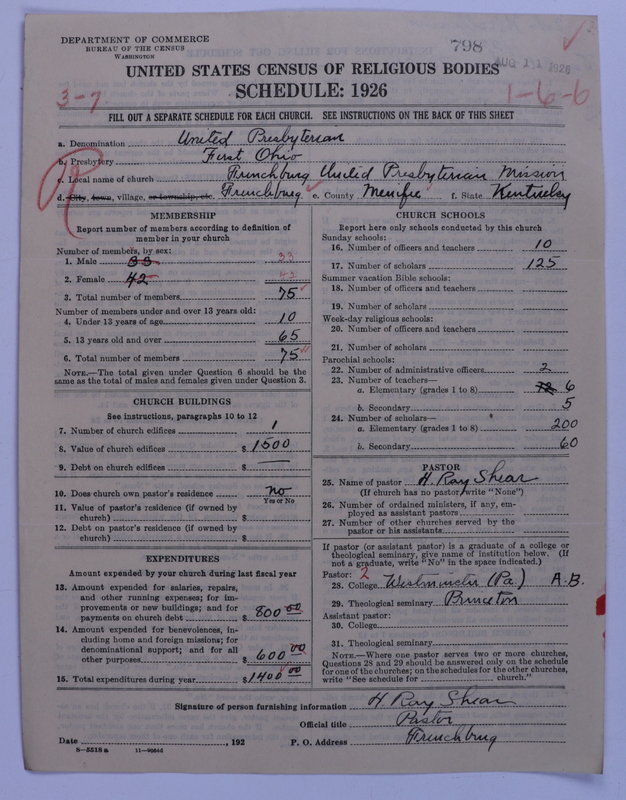 DEPARTMENT OF COMMERCE
BUREAU OF THE CENSUS
WASHINGTON
798
AUG 11 1926
UNITED STATES CENSUS OF RELIGIOUS BODIES
SCHEDULE: 1926
3-7
1-6-6
FILL OUT A SEPARATE SCHEDULE FOR EACH CHURCH. SEE INSTRUCTIONS ON THE BACK OF THIS SHEET
a. Denomination United Presbyterian
b. Presbytery First Ohio
c. Local name of church Frenchburg United Presbyterian Mission
d. City, town, village, or township, etc. Frenchburg e. County Menifee f. State Kentucky
R
MEMBERSHIP
Report number of members according to definition of
member in your church
Number of members, by sex:
1. Male 33 33
2. Female 42 42
3. Total number of members 75
Number of members under and over 13 years old:
4. Under 13 years of age 10
5. 13 years old and over 65
6. Total number of members 75
NOTE.—The total given under Question 6 should be
same as the total of males and females given under Question 3.
CHURCH BUILDINGS
See instructions, paragraphs 10 to 12
7. Number of church edifices 1
8. Value of church edifices $ 1500
9. Debt on church edifices $ —
10. Does church own pastor's residence no
Yes or No
11. Value of pastor's residence (if owned by
church) $
12. Debt on pastor's residence (if owned by
church) $
EXPENDITURES
Amount expended by your church during last fiscal year
13. Amount expended for salaries, repairs,
and other running expenses; for im-
provements or new buildings; and for
payments on church debt $ 800 00
14. Amount expended for benevolences, in-
cluding home and foreign missions; for
denominational support; and for all
other purposes $ 600 00
15. Total expenditures during year $ 1400 00
CHURCH SCHOOLS
Report here only schools conducted by this church
Sunday schools:
16. Number of officers and teachers 10
17. Number of scholars 125
Summer vacation Bible schools:
18. Number of officers and teachers
19. Number of scholars
Week-day religious schools:
20. Number of officers and teachers
21. Number of scholars
Parochial schools:
22. Number of administrative officers 2
23. Number of teachers—
a. Elementary (grades 1 to 8) 6
b. Secondary 5
24. Number of scholars—
a. Elementary (grades 1 to 8) 200
b. Secondary 60
PASTOR
25. Name of pastor H. Ray Shear
(If church has no pastor, write "None")
26. Number of ordained ministers, if any, em-
ployed as assistant pastors
27. Number of other churches served by the
pastor or his assistants
If pastor (or assistant pastor) is a graduate of a college or
theological seminary, give name of institution below. (If
not a graduate, write "No" in the space indicated.)
Pastor: 2
28. College Westminster (Pa.) A.B.
29. Theological seminary Princeton
Assistant pastor:
30. College
31. Theological seminary
NOTE.—Where one pastor serves two or more churches,
Questions 28 and 29 should be answered only on the schedule
for one of the churches; on the schedules for the other churches,
write "See schedule for church."
Signature of person furnishing information H Ray Shear
Official title Pastor
Date , 192 P. O. Address Frenchburg
8—5518 a